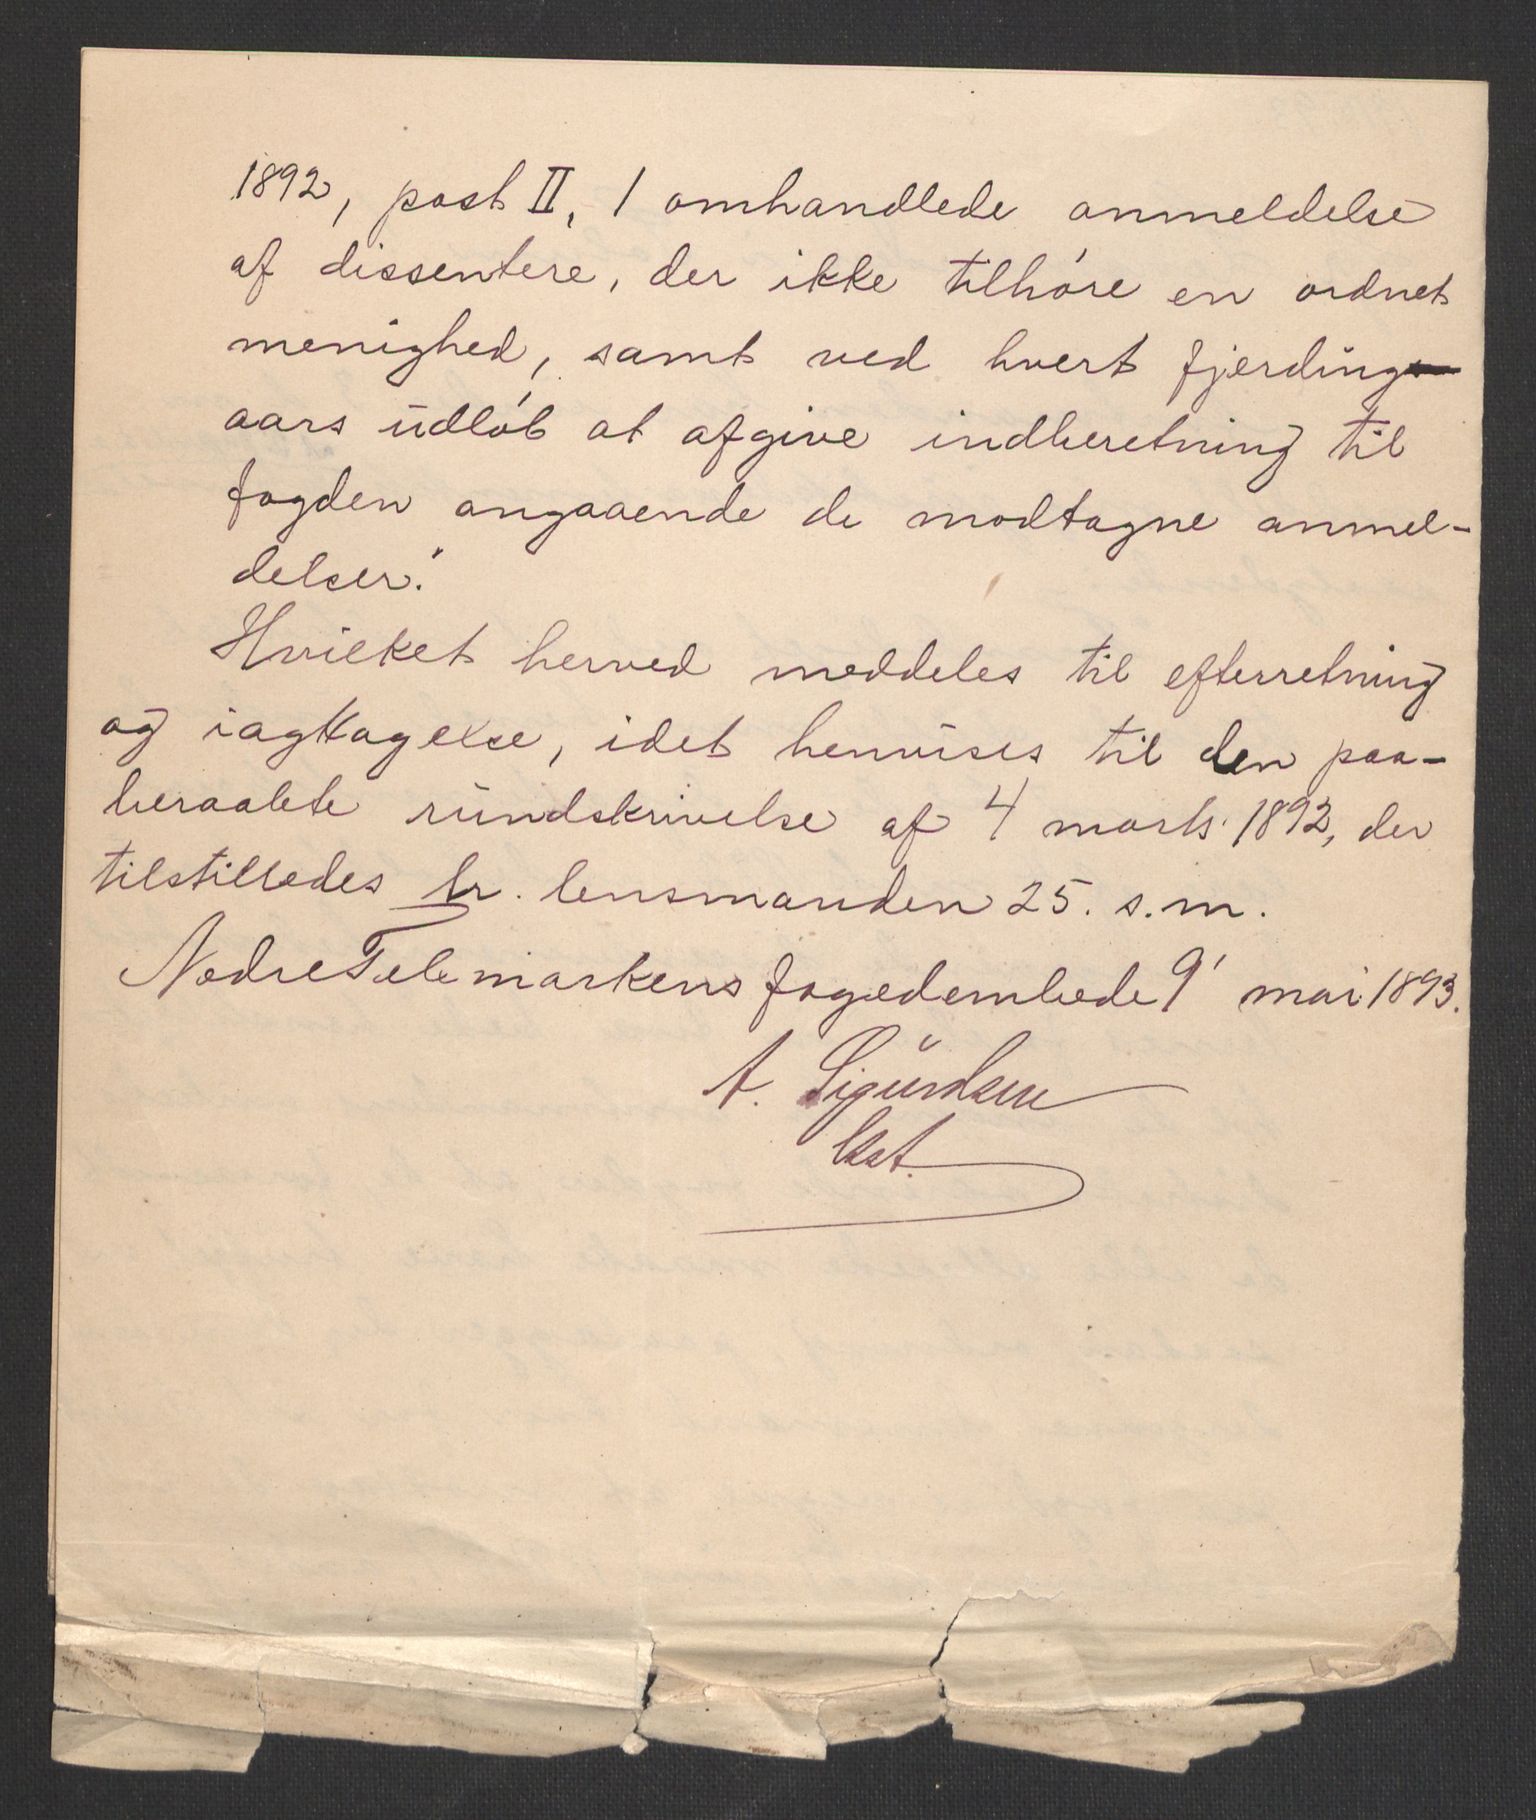 1892, post II, 1 omhandlede anmeldelse
af dissentere, der ikke tilhøre en ordnet
menighed, samt ved hvert fjerdings-
aars udløb at afgive indberetning til
fogden angaaende de modtagne anmel-
delser."
Hvilket herved meddeles til efterretning
og iagttagelse, idet henvises til den paa-
beraabte rundskrivelse af 4 marts 1892, der
tilstilledes hr. lensmanden 25. s.m.
Nedre Telemarkens fogedembede 9' mai 1893.
A. Sigurdsen